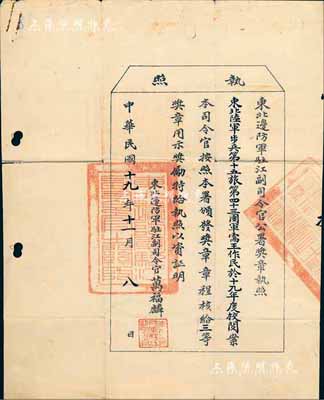 執照
東北邊防軍駐江副司令官公署奬章執照
東北陸軍步兵第十五旅第四十二團軍需王作民於十九年度校閱案
本司令官按照本署頒發奬章章程核給三等
奬章用示奬勵特給執照以資証明
東北邊防軍駐江副司令官萬福麟
中華民國十九年十一月八日